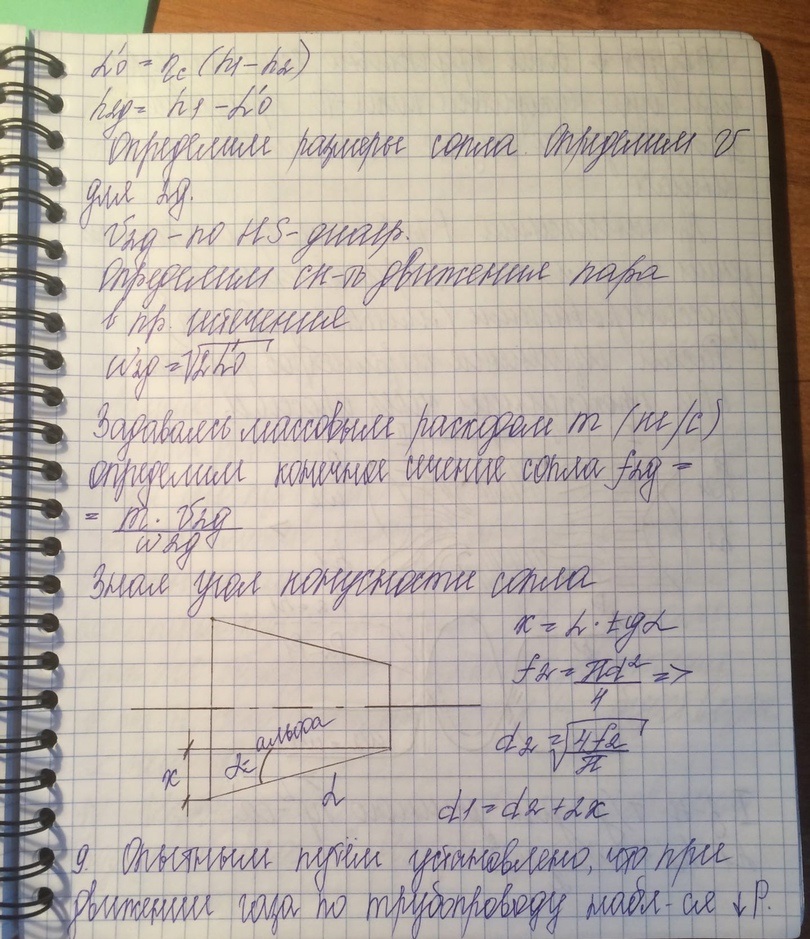 L'0 = ηc (h1 - h2)
h2g = h1 - L'0
Определим размеры сопла. Определим V
для 2g.
V2g - по HS-диагр.
Определим ск-ть движения пара
в пр. истечения
w2g = √2L'0
Задаваясь массовым расходом m (кг/с)
определим конечное сечение сопла f2g =
= m · V2g / w2g
Зная угол конусности сопла
x = L · tg α
f2 = πd² / 4 =>
d2 = √4f2 / π
d1 = d2 + 2x
альфа
α =
x
L
9. Опытным путём установлено, что при
движении газа по трубопроводу набл-ся ↓ P.